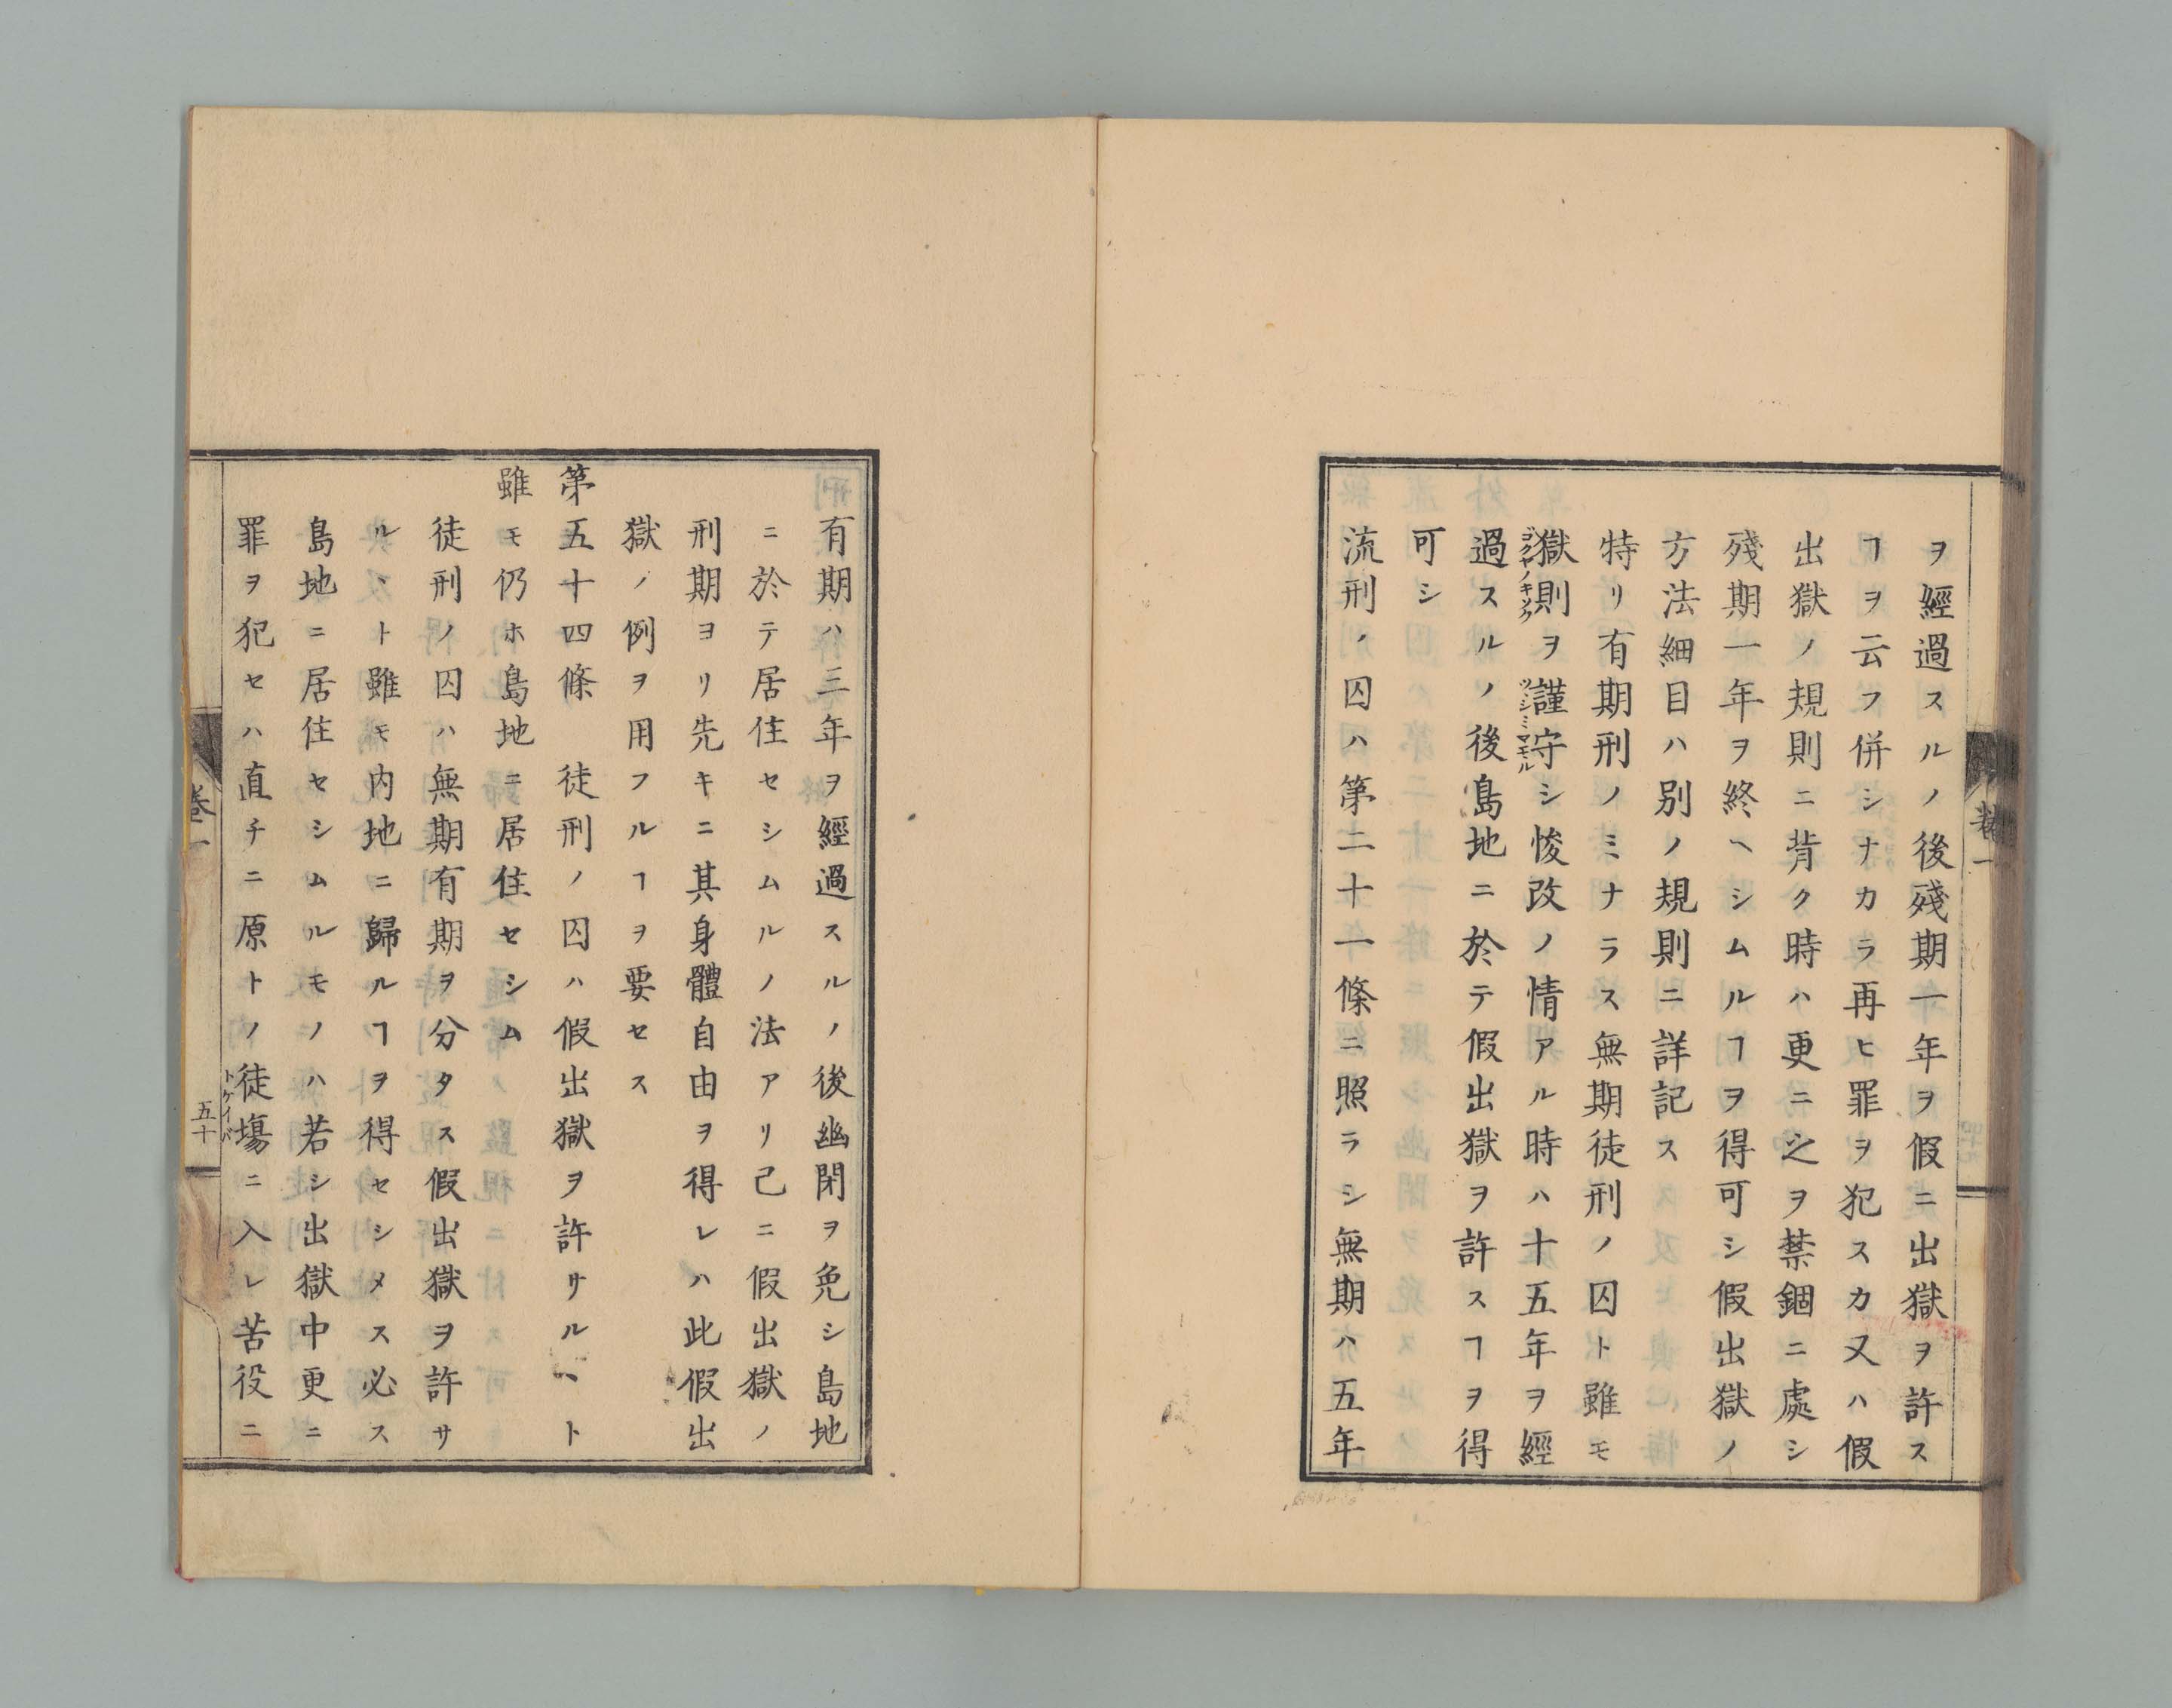 ヲ經過スルノ後殘期一年ヲ假ニ出獄ヲ許ス
ヿヲ云フ併シナカラ再ヒ罪ヲ犯スカ又ハ假
出獄ノ規則ニ背ク時ハ更ニ之ヲ禁錮ニ處シ
殘期一年ヲ終ヘシムルヿヲ得可シ假出獄ノ
方法細目ハ別ノ規則ニ詳記ス
特リ有期刑ノミナラス無期徒刑ノ囚ト雖モ
獄則ヲ謹守シ悛改ノ情アル時ハ十五年ヲ經
ゴクヤノキソク
ツシミマモル
過スルノ後島地ニ於テ假出獄ヲ許スヿヲ得
可シ
流刑ノ囚ハ第二十一條ニ照ラシ無期ハ五年
卷一
有期ハ三年ヲ經過スルノ後幽閉ヲ免シ島地
ニ於テ居住セシムルノ法アリ已ニ假出獄ノ
刑期ヨリ先キニ其身體自由ヲ得レハ此假出
獄ノ例ヲ用フルヿヲ要セス
第五十四條 徒刑ノ囚ハ假出獄ヲ許サルヽト
雖モ仍ホ島地ニ居住セシム
徒刑ノ囚ハ無期有期ヲ分タス假出獄ヲ許サ
ルヽト雖モ内地ニ歸ルヿヲ得セシメス必ス
島地ニ居住セシムルモノハ若シ出獄中更ニ
罪ヲ犯セハ直チニ原トノ徒塲ニ入レ苦役ニ
トケイバ
卷一
五十